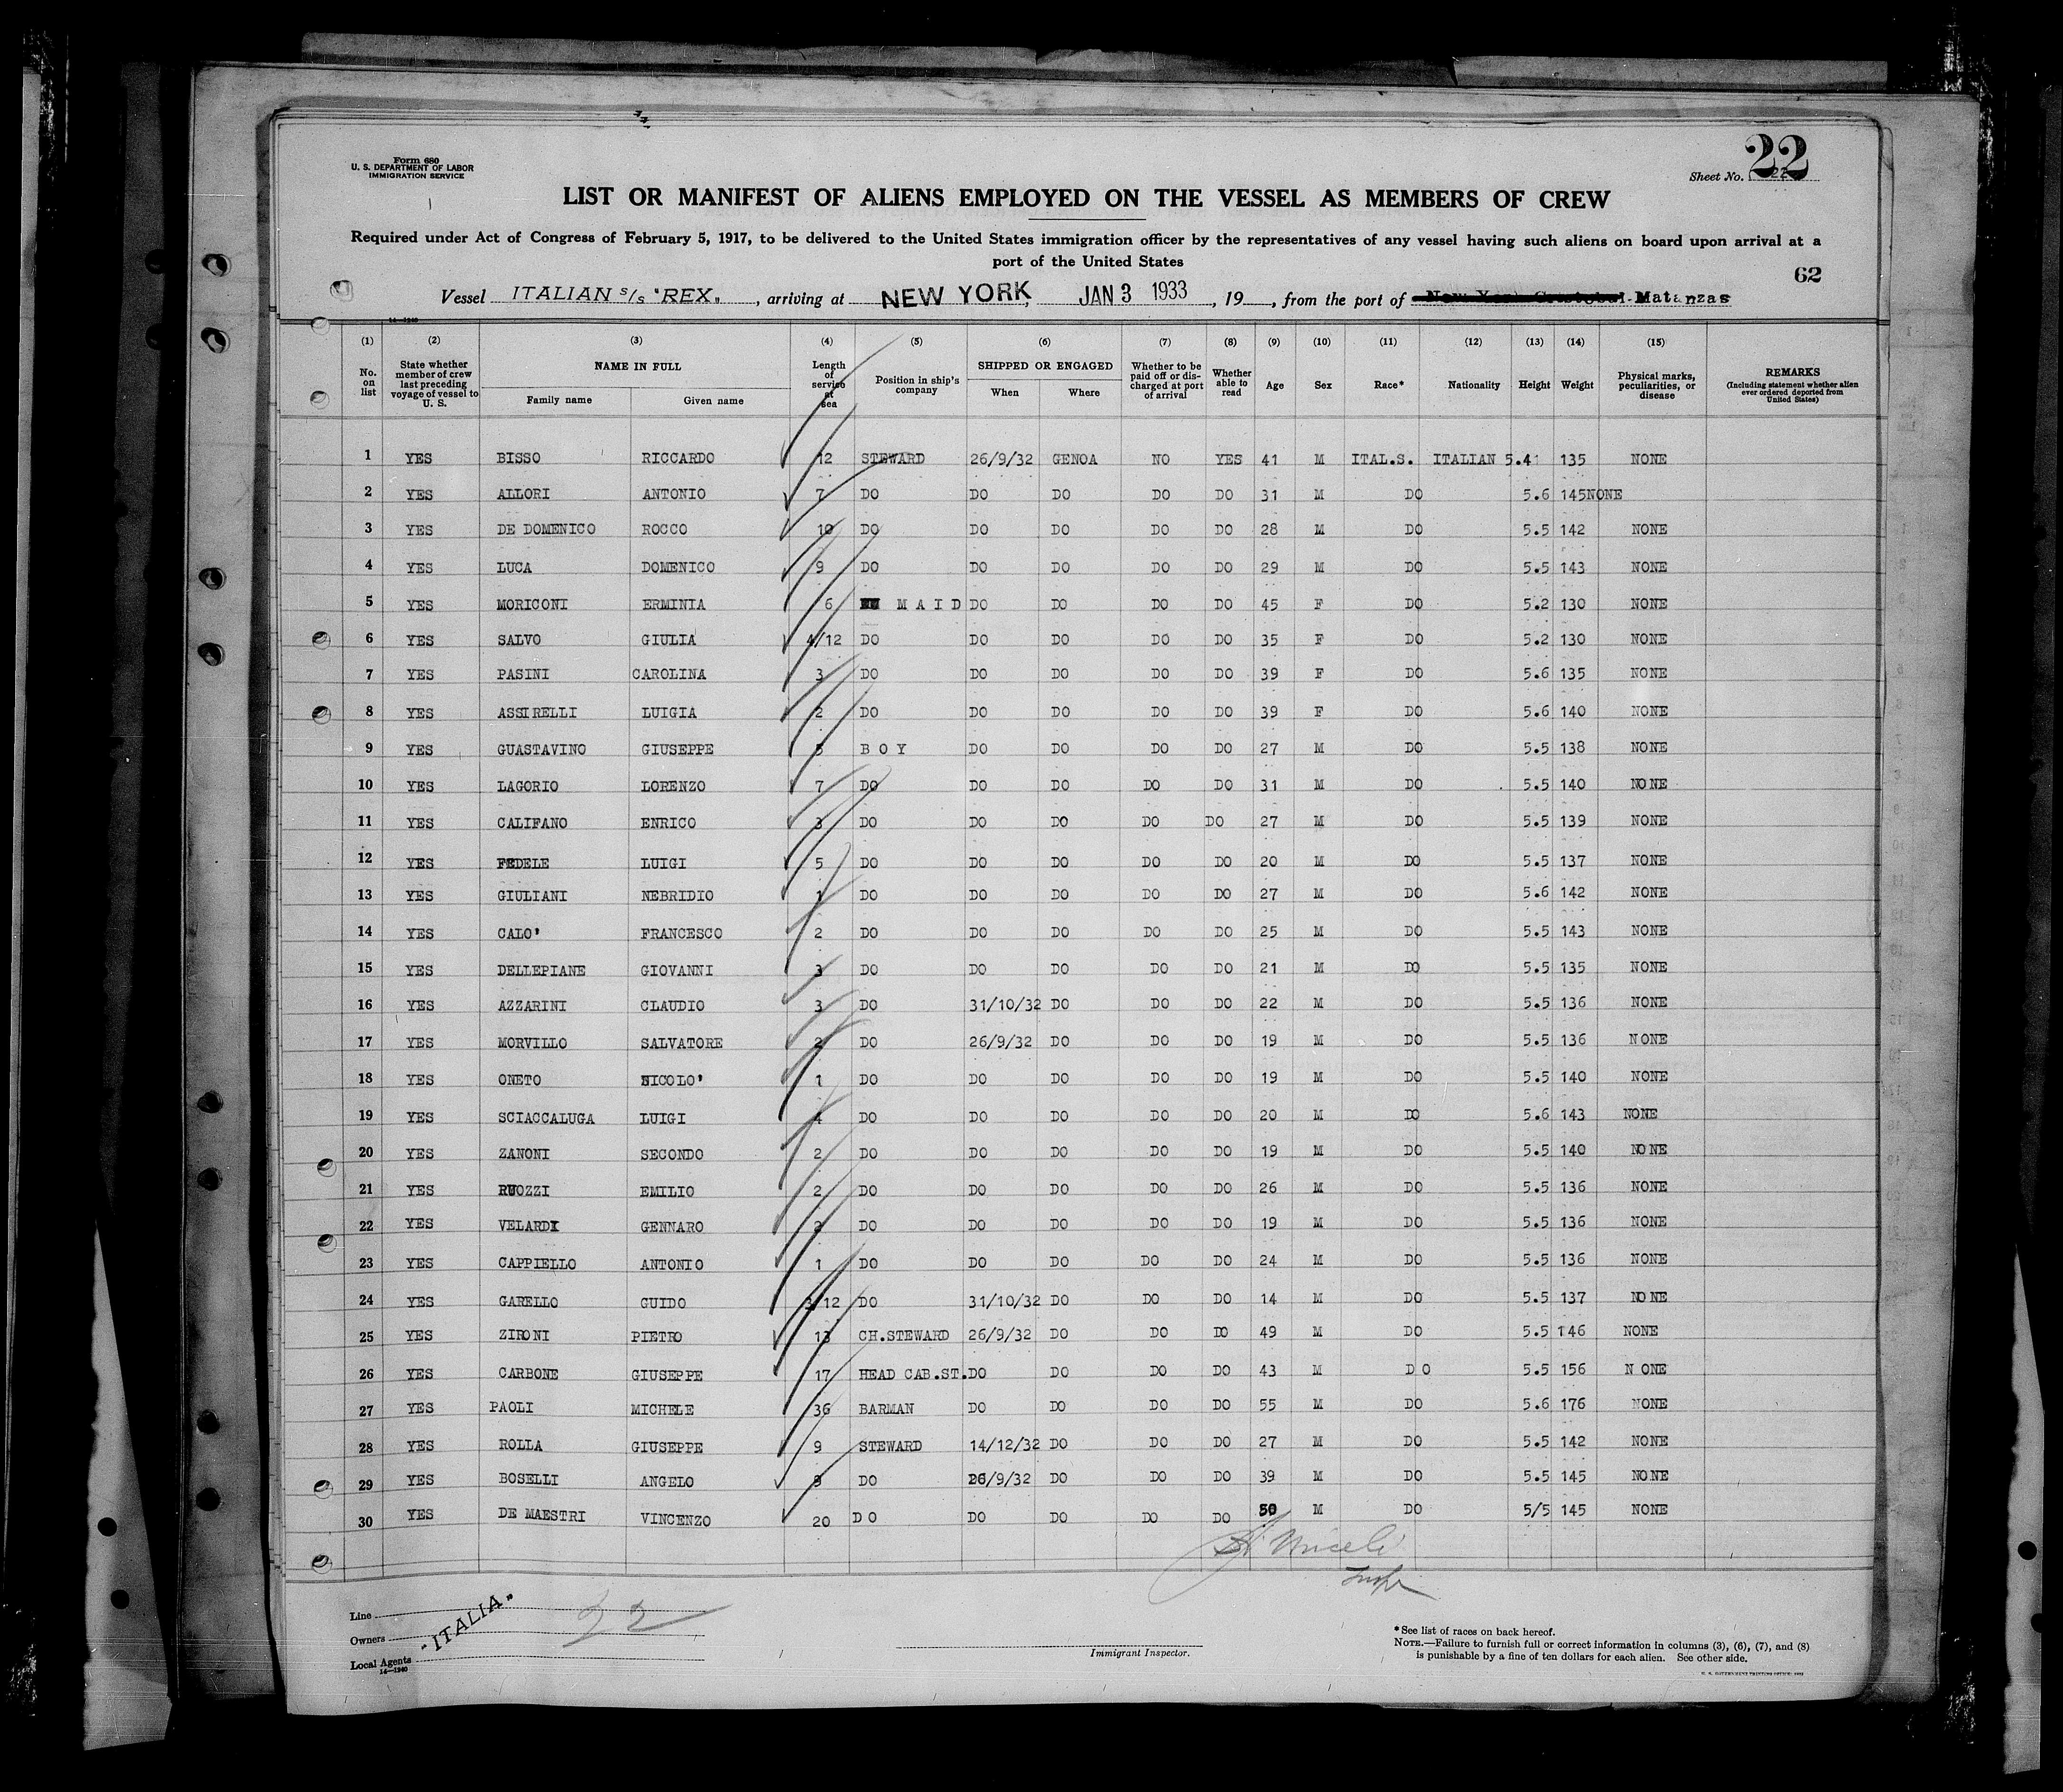 Form 680
U. S. DEPARTMENT OF LABOR
IMMIGRATION SERVICE
22
Sheet No. 22
LIST OR MANIFEST OF ALIENS EMPLOYED ON THE VESSEL AS MEMBERS OF CREW
Required under Act of Congress of February 5, 1917, to be delivered to the United States immigration officer by the representatives of any vessel having such aliens on board upon arrival at a
port of the United States
62
Vessel ITALIAN S/S "REX", arriving at NEW YORK, JAN 3 1933, 19 , from the port of New York Cristobal Matanzas
14—1940
(1) (2) (3) (4) (5) (6) (7) (8) (9) (10) (11) (12) (13) (14) (15)
No. on list State whether member of crew last preceding voyage of vessel to U. S. NAME IN FULL Family name Given name Length of service at sea Position in ship's company SHIPPED OR ENGAGED When Where Whether to be paid off or discharged at port of arrival Whether able to read Age Sex Race* Nationality Height Weight Physical marks, peculiarities, or disease REMARKS (Including statement whether alien ever ordered deported from United States)
1 YES BISSO RICCARDO 12 STEWARD 26/9/32 GENOA NO YES 41 M ITAL.S. ITALIAN 5.4 135 NONE
2 YES ALLORI ANTONIO 7 DO DO DO DO DO 31 M DO 5.6 145 NONE
3 YES DE DOMENICO ROCCO 10 DO DO DO DO DO 28 M DO 5.5 142 NONE
4 YES LUCA DOMENICO 9 DO DO DO DO DO 29 M DO 5.5 143 NONE
5 YES MORICONI ERMINIA 6 MAID DO DO DO DO 45 F DO 5.2 130 NONE
6 YES SALVO GIULIA 4/12 DO DO DO DO DO 35 F DO 5.2 130 NONE
7 YES PASINI CAROLINA 3 DO DO DO DO DO 39 F DO 5.6 135 NONE
8 YES ASSIRELLI LUIGIA 2 DO DO DO DO DO 39 F DO 5.6 140 NONE
9 YES GUASTAVINO GIUSEPPE 5 BOY DO DO DO DO 27 M DO 5.5 138 NONE
10 YES LAGORIO LORENZO 7 DO DO DO DO DO 31 M DO 5.5 140 NONE
11 YES CALIFANO ENRICO 3 DO DO DO DO DO 27 M DO 5.5 139 NONE
12 YES FEDELE LUIGI 5 DO DO DO DO DO 20 M DO 5.5 137 NONE
13 YES GIULIANI NEBRIDIO 1 DO DO DO DO DO 27 M DO 5.6 142 NONE
14 YES CALO' FRANCESCO 2 DO DO DO DO DO 25 M DO 5.5 143 NONE
15 YES DELLEPIANE GIOVANNI 3 DO DO DO DO DO 21 M DO 5.5 135 NONE
16 YES AZZARINI CLAUDIO 3 DO 31/10/32 DO DO DO 22 M DO 5.5 136 NONE
17 YES MORVILLO SALVATORE 2 DO 26/9/32 DO DO DO 19 M DO 5.5 136 NONE
18 YES ONETO NICOLO' 1 DO DO DO DO DO 19 M DO 5.5 140 NONE
19 YES SCIACCALUGA LUIGI 4 DO DO DO DO DO 20 M DO 5.6 143 NONE
20 YES ZANONI SECONDO 2 DO DO DO DO DO 19 M DO 5.5 140 NONE
21 YES RUOZZI EMILIO 2 DO DO DO DO DO 26 M DO 5.5 136 NONE
22 YES VELARDI GENNARO 2 DO DO DO DO DO 19 M DO 5.5 136 NONE
23 YES CAPPIELLO ANTONIO 1 DO DO DO DO DO 24 M DO 5.5 136 NONE
24 YES GARELLO GUIDO 3/12 DO 31/10/32 DO DO DO 14 M DO 5.5 137 NONE
25 YES ZIRONI PIETRO 13 CH.STEWARD 26/9/32 DO DO DO 49 M DO 5.5 146 NONE
26 YES CARBONE GIUSEPPE 17 HEAD CAB.ST. DO DO DO DO 43 M DO 5.5 156 NONE
27 YES PAOLI MICHELE 36 BARMAN DO DO DO DO 55 M DO 5.6 176 NONE
28 YES ROLLA GIUSEPPE 9 STEWARD 14/12/32 DO DO DO 27 M DO 5.5 142 NONE
29 YES BOSELLI ANGELO 9 DO 26/9/32 DO DO DO 39 M DO 5.5 145 NONE
30 YES DE MAESTRI VINCENZO 20 DO DO DO DO DO 50 M DO 5/5 145 NONE
Miceli
Insp
Line
Owners "ITALIA"
Local Agents
14—1940
22
Immigrant Inspector.
*See list of races on back hereof.
NOTE.—Failure to furnish full or correct information in columns (3), (6), (7), and (8)
is punishable by a fine of ten dollars for each alien. See other side.